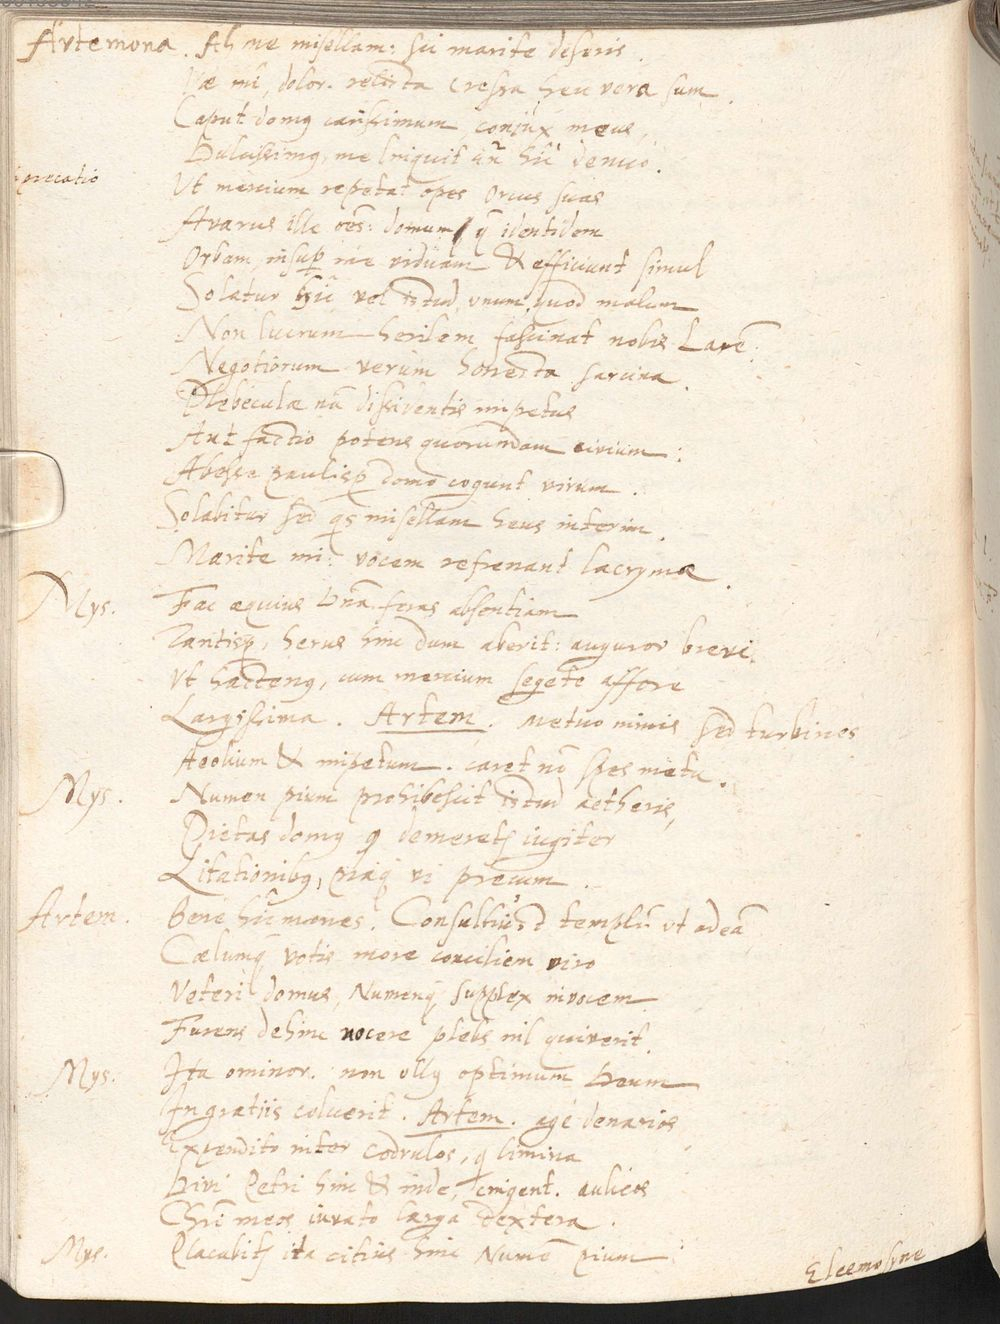 Artemona. Ah me misellam: sic marite deseris.
Vae mi, dolor. relicta Cressa heu vera sum.
Caput domus carissimum, conjux meus,
Dulcissimus, me linquit en hic denuo.
precatio
Ut mercium repetat opes Orcus suas
Avarus ille oēs: domum q̄ identidem
Orbam, insup me viduam & efficiunt simul
Solatur hīc vel istud unum, quod malum
Non lucrum herilem fascinat nobis Larē:
Negotiorum verùm honesta sarcina.
Plebeculae nā dissidentis impetus
Aut factio potens quorundam civium:
Abesse paulisp domo cogunt virum.
Solabitur sed qs misellam heus interim.
Marite mi: vocem refrenant lacrymae.
Mys. Fac aequius hēra feras absentiam
Tantisp, herus hinc dum aberit: auguror brevi
Ut hactenus, cum mercium segete affore
Largissima. Artem. metuo nimis sed turbines
Aeolium & impetum. caret nō spes metu.
Mys. Numen pium prohibescit istud aetheris,
Pietas domus q demerets iugiter
Litationibus, piaq vi precum.
Artem. Bene hīc mones. Consultius ē templū ut adeā
Caelumq votis more conciliem viro
Veteri domus, Numenq supplex invocem
Furens dehinc nocere plebs nil quiverit.
Mys. Ita ominor. non ullus optimum Deum
Ingratiis coluerit. Artem. agè denarios
Expendito inter Codrulos, q limina
Divi Petri hinc & inde, cingent. aulicos
Chri meos iuvato larga dextera.
Mys. Placabits ita citius hinc Numē pium:
Eleemosyne